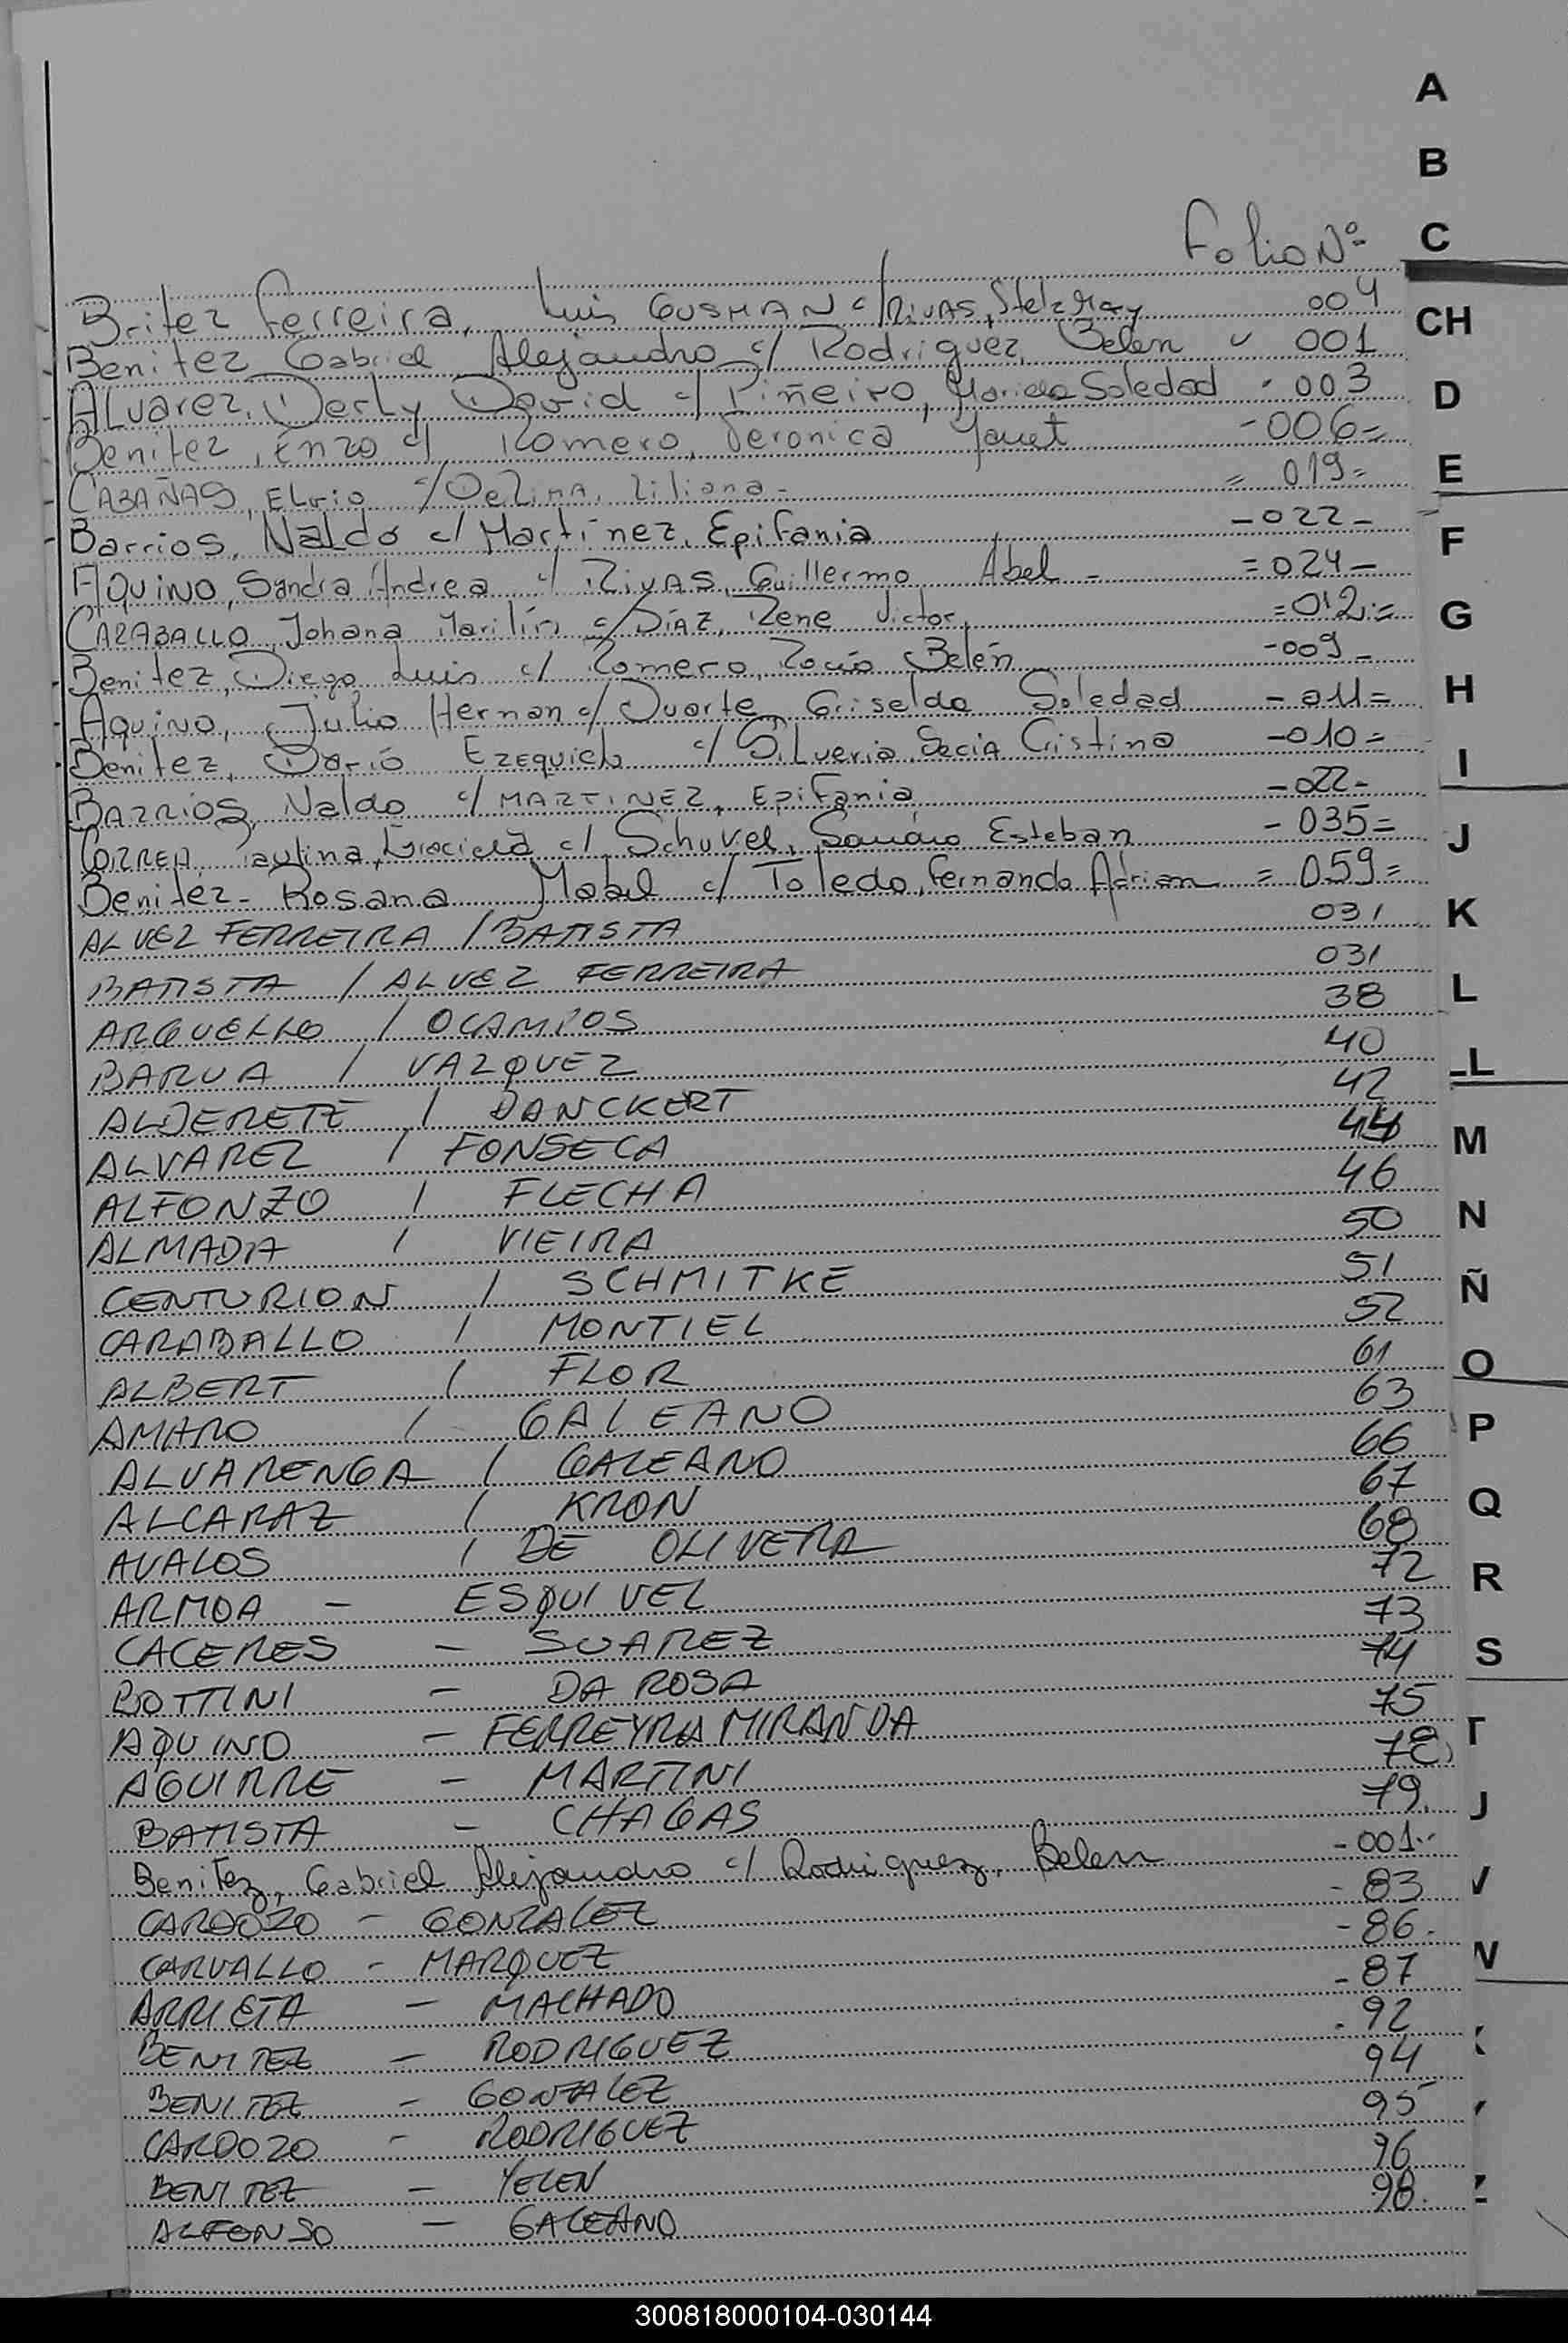 A
B
C
Folio Nº
Britez Ferreira, Luis GUSMAN c/ RIVAS, Stela May 004
CH
Benitez Gabriel Alejandro c/ Rodriguez, Belen 001
ALvarez, Derly David c/ Piñeiro, Mariela Soledad - 003
D
Benitez, Enzo c/ Romero, Veronica Yanet - 006 =
CABAÑAS, ELvio c/ De Lima, Liliana - = 019 =
E
Barrios, Naldo c/ Martínez, Epifania - 022 -
F
AQUINO, Sandra Andrea c/ RIVAS, Guillermo Abel - = 024 -
CARABALLO, Johana Marilin c/ DIAZ, Rene Victor = 012 =
G
Benitez, Diego Luis c/ Romero, Rocío Belén - 009 -
Aquino, Julio Hernan c/ Duarte, Griselda Soledad - 011 =
H
Benitez, Darío EZEQUIEL c/ SiLveria, Cristina - 010 =
I
BARRIOS, Naldo c/ MARTINEZ, Epifania - 022 -
CORREA, Paulina, Graciela c/ Schuvel, Sandro Esteban - 035 =
J
Benitez - Rosana Mabel c/ Toledo, Fernando Adrian = 059 =
ALVEZ FERREIRA / BATISTA 031
K
BATISTA / ALVEZ FERREIRA 031
L
ARGUELLO / OCAMPOS 38
BARUA / VAZQUEZ 40
LL
ALDERETE / DANCKERT 42
ALVAREZ / FONSECA 44
M
ALFONZO / FLECHA 46
ALMADA / VIEIRA 50
N
CENTURION / SCHMITKE 51
Ñ
CARABALLO / MONTIEL 52
ALBERT / FLOR 61
O
AMARO / GALEANO 63
P
ALVARENGA / GALEANO 66
ALCARAZ / KRON 67
Q
AVALOS / DE OLIVEIRA 68
ARMOA - ESQUIVEL 72
R
CACERES - SUAREZ 73
BOTTINI - DA ROSA 74
S
AQUINO - FERREYRA MIRANDA 75
T
AGUIRRE - MARTINI 78
BATISTA - CHAGAS 79
Benitez, Gabriel Alejandro c/ Rodriguez, Belen - 001
V
CARDOZO - GONZALEZ - 83
CARVALLO - MARQUEZ - 86 -
ARRIETA - MACHADO - 87
BENITEZ - RODRIGUEZ - 92
BENITEZ - GONZALEZ 94
CARDOZO - RODRIGUEZ 95
BENITEZ - YELEN 96
ALFONSO - GALEANO 98
Z
300818000104-030144